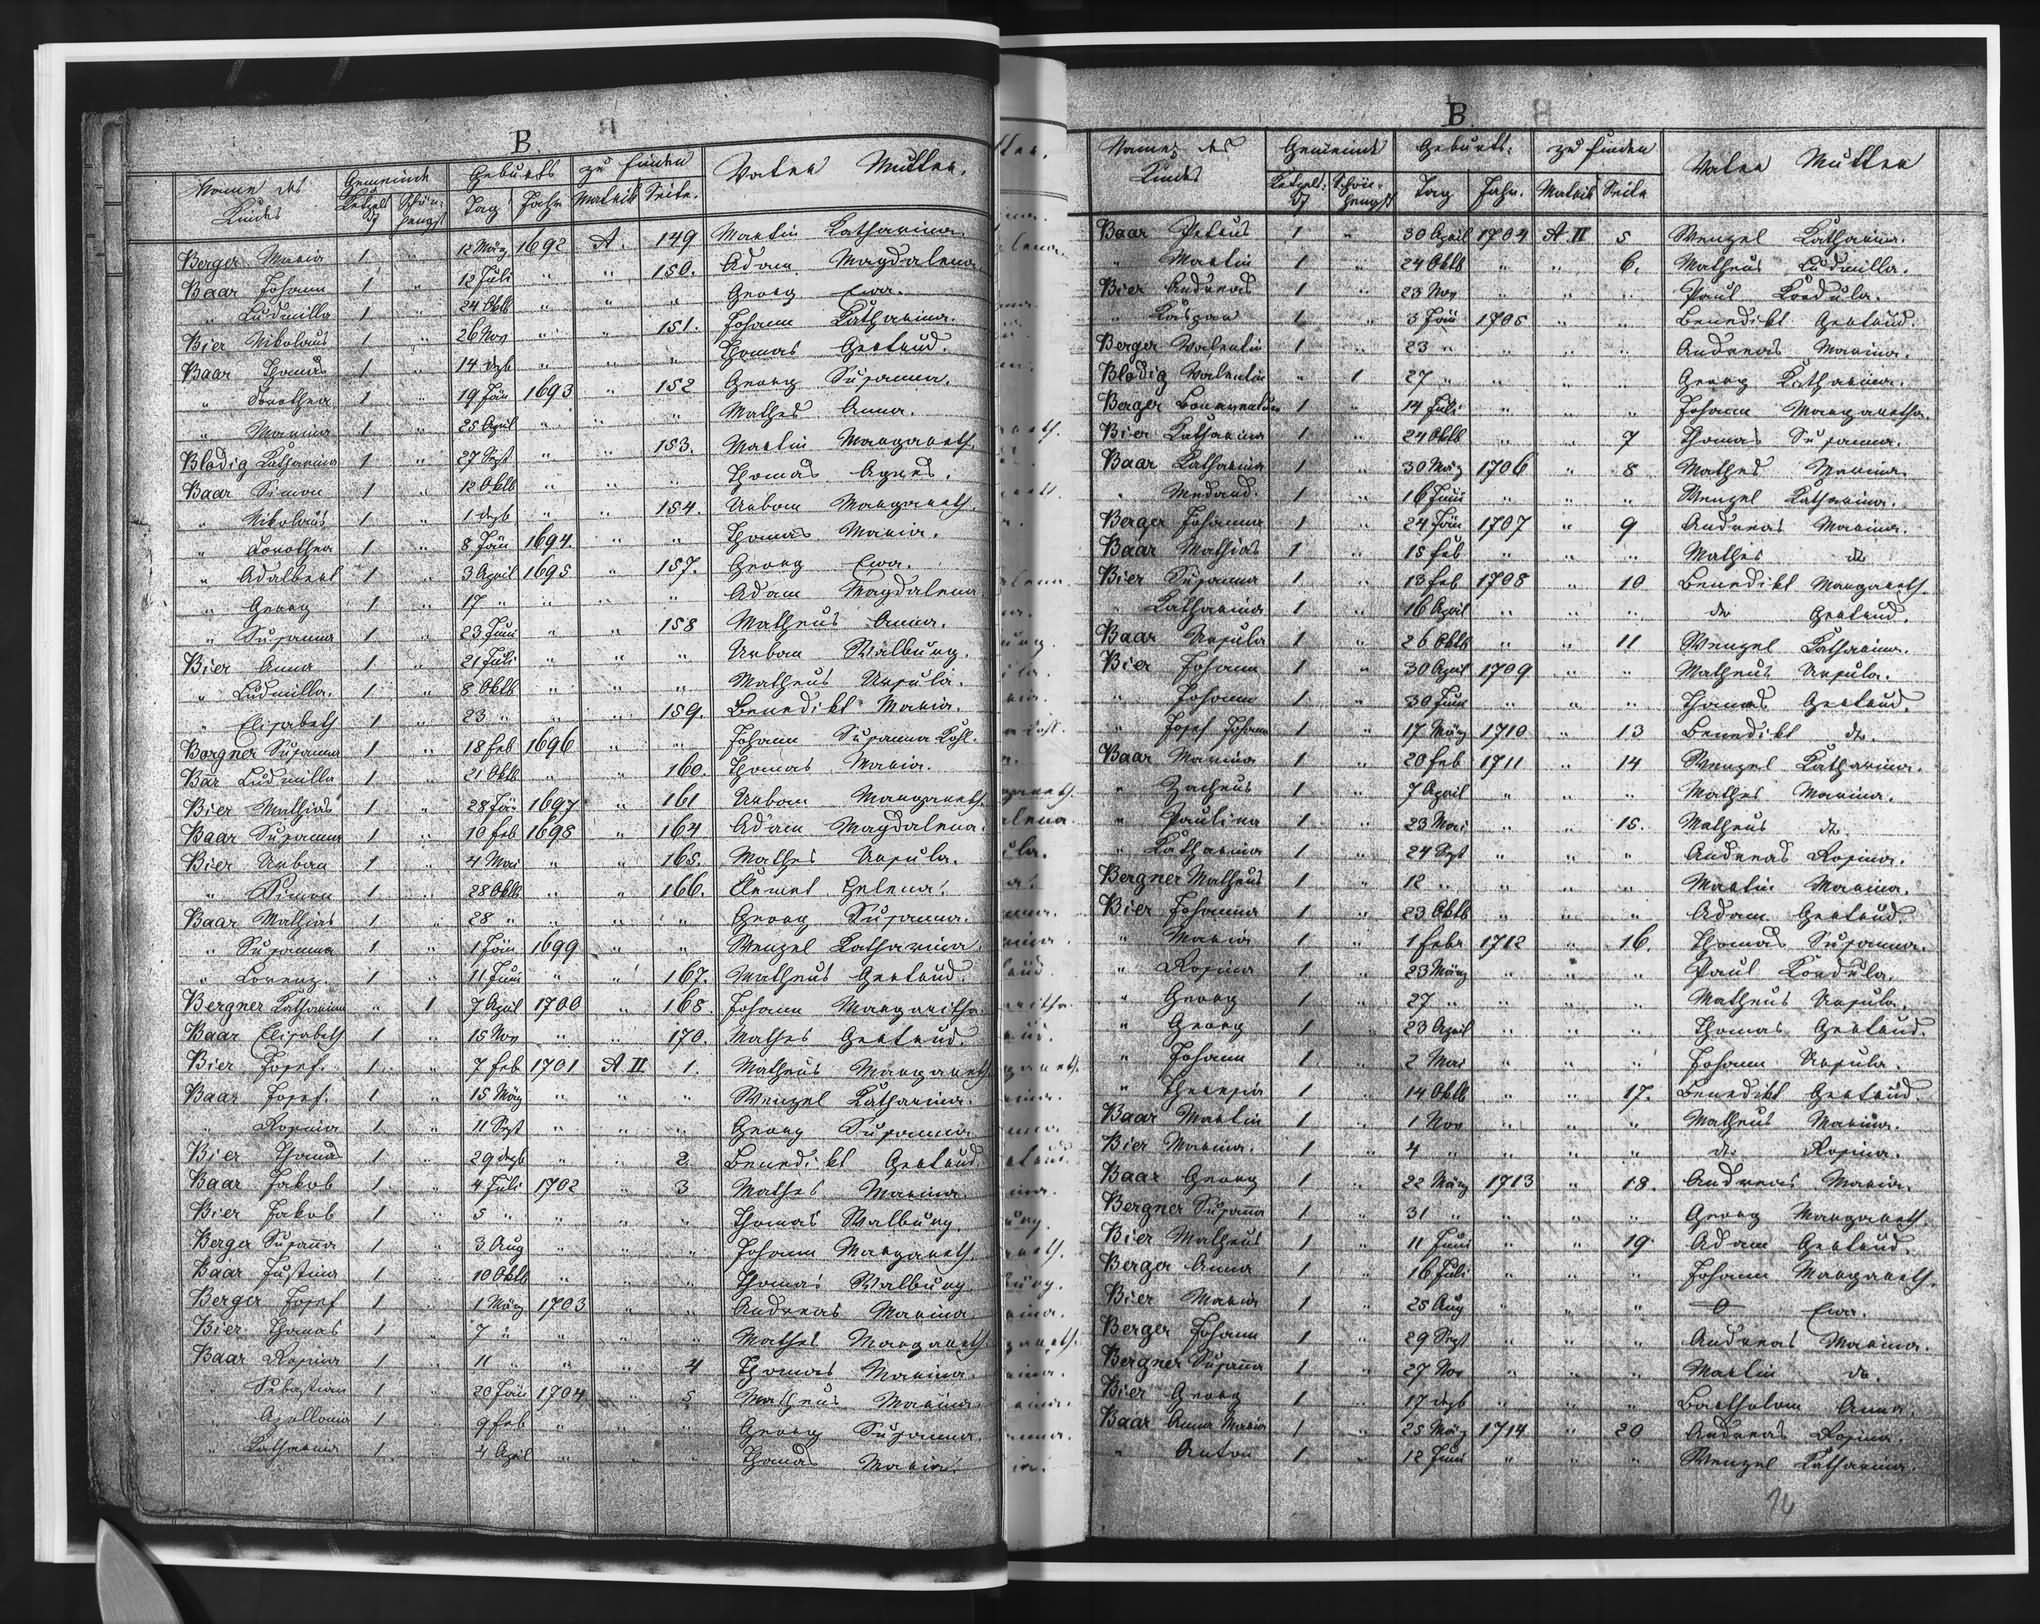 B.
Name des Kindes Gemeinde Geburts zu finden Vater Mutter.
Ketzelsdf Schönhengst Tag Jahr Matrik Seite.
Berger Maria 1 " 12 März 1692 A. 149 Martin Katharina.
Baar Johann 1 " 12 Juli " " 150. Adam Magdalena.
" Ludmilla 1 " 24 Oktb " " " Georg Eva.
Bier Nikolaus 1 " 26 Nov " " 151. Johann Katharina.
Baar Thomas 1 " 14 dezb " " " Thomas Gertrud.
" Dorothea 1 " 19 Jän 1693 " 152 Georg Susanna.
" Marina 1 " 25 April " " " Mathes Anna.
Blodig Katharina 1 " 27 Sept " " 153. Martin Margareth.
Baar Simon 1 " 12 Oktb " " " Thomas Agnes.
" Nikolaus 1 " 1 dezb " " 154. Urban Margareth.
" Dorothea 1 " 8 Jän 1694. " " Thomas Maria.
" Adalbert 1 " 3 April 1695 " 157. Georg Eva.
" Georg 1 " 17 " " " " Adam Magdalena
" Susanna 1 " 23 Juni " " 158 Matheus Anna.
Bier Anna 1 " 21 Juli " " " Urban Walburg.
" Ludmilla. 1 " 8 Oktb " " " Matheus Ursula.
" Elisabeth 1 " 23 " " " 159. Benedikt Maria.
Borgner Susanna 1 " 18 Feb 1696 " " Johann Susanna Kohl.
Bar Ludmilla 1 " 21 Oktb " " 160. Thomas Maria.
Bier Mathias 1 " 28 Jän 1697 " 161 Urban Margareth.
Baar Susanna 1 " 10 Feb 1698 " 164 Adam Magdalena.
Bier Urban 1 " 4 Mai " " 165. Mathes Ursula.
" Simon 1 " 28 Oktb " " 166. Clemet Helena.
Baar Mathias 1 " 28 " " " " Georg Susanna.
" Susanna 1 " 1 Jän 1699 " " Wenzel Katharina.
" Lorenz. 1 " 11 Juni " " 167. Matheus Gertrud.
Bergner Katharina " 1 7 April 1700 " 168. Johann Margaritha.
Baar Elisabeth 1 " 15 Nov " " 170. Mathes Gertrud.
Bier Josef. 1 " 7 Feb 1701 A II 1. Matheus Margareth
Baar Josef. 1 " 15 März " " " Wenzel Katharina.
" Rosina 1 " 11 Sept " " " Georg Susanna
Bier Thomas 1 " 29 dezb " " 2 Benedikt Gertrud.
Baar Jakob 1 " 4 Juli 1702 " 3 Mathes Marina.
Bier Jakob 1 " 5 " " " " Thomas Walburg.
Berger Susana 1 " 3 Aug " " " Johann Margareth.
Baar Justina 1 " 10 Oktb " " " Thomas Walburg
Berger Josef 1 " 1 März 1703 " " Andreas Marina
Bier Thomas 1 " 7 " " " " Mathes Margareth.
Baar Rosina 1 " 11 " " " 4 Thomas Marina.
" Sebastian 1 " 20 Jän 1704 " 5 Matheus Marina.
" Apollonia 1 " 9 Feb " " " Georg Susanna.
" Katharina 1 " 4 April " " " Thomas Maria.
B.
Name des Kindes Gemeinde Geburts: zu finden Vater Mutter
Ketzelsdf Schönhengst Tag Jahr. Matrik Seite
Baar Petrus 1 " 30 April 1704 A II 5 Wenzel Katharina.
" Martin 1 " 24 Oktb " " 6. Matheus Ludmilla.
Bier Andreas 1 " 23 Nov " " " Paul Kordula.
" Kaspar 1 " 3 Jän 1705 " " Benedikt Gertrud.
Berger Valentin 1 " 23 " " " " Andreas Marina.
Blodig Valentin " 1 27 " " " " Georg Katharina.
Berger Bonaventura 1 " 14 Juli " " " Johann Margaretha.
Bier Katharina 1 " 24 Oktb " " 7 Thomas Susanna.
Baar Katharina 1 " 30 März 1706 " 8 Mathes Marina.
" Medard. 1 " 16 Juni " " " Wenzel Katharina.
Berger Johanna 1 " 24 Jän 1707 " 9 Andreas Marina.
Baar Mathias 1 " 15 Feb " " " Mathes do
Bier Susanna 1 " 13 Feb 1708 " 10 Benedikt Margareth.
" Katharina 1 " 16 April " " " do Gertrud.
Baar Ursula 1 " 26 Oktb " " 11 Wenzel Katharina.
Bier Johann 1 " 30 April 1709 " " Matheus Ursula.
" Johann 1 " 30 Juni " " " Thomas Gertrud.
" Josef Johann 1 " 17 März 1710 " 13 Benedikt do.
Baar Marina 1 " 20 Feb 1711 " 14 Wenzel Katharina.
" Zacheus 1 " 7 April " " " Mathes Marina.
" Paulina 1 " 23 Mai " " 15. Matheus do.
" Katharina 1 " 24 Sept " " " Andreas Rosina.
Bergner Matheus 1 " 12 " " " " Martin Marina.
Bier Johanna 1 " 23 Oktb " " " Adam Gertrud.
" Maria 1 " 1 Febr 1712 " 16. Thomas Susanna.
" Rosina 1 " 23 März " " " Paul Kordula.
" Georg 1 " 27 " " " " Matheus Ursula.
" Georg 1 " 23 April " " " Thomas Gertrud.
" Johann 1 " 2 Mai " " " Johann Ursula.
" Theresia 1 " 14 Oktb " " 17. Benedikt Gertrud
Baar Martin 1 " 1 Nov " " " Matheus Marina.
Bier Marina. 1 " 4 " " " " do. Rosina.
Baar Georg 1 " 22 März 1713 " 18. Andreas Maria.
Bergner Susana 1 " 31 " " " " Georg Margareth.
Bier Matheus 1 " 11 Juni " " 19 Adam Gertrud.
Berger Anna 1 " 16 Juli " " " Johann Margareth.
Bier Maria 1 " 25 Aug " " " 0 Eva.
Berger Johann 1 " 29 Sept " " " Andreas Marina.
Bergner Susana 1 " 27 Nov " " " Martin do.
Bier Georg 1 " 17 dezb " " " Bartholom Anna.
Baar Anna Maria 1 " 25 März 1714 " 20 Andreas Rosina.
" Anton 1 " 12 Juni " " " Wenzel Katharina.